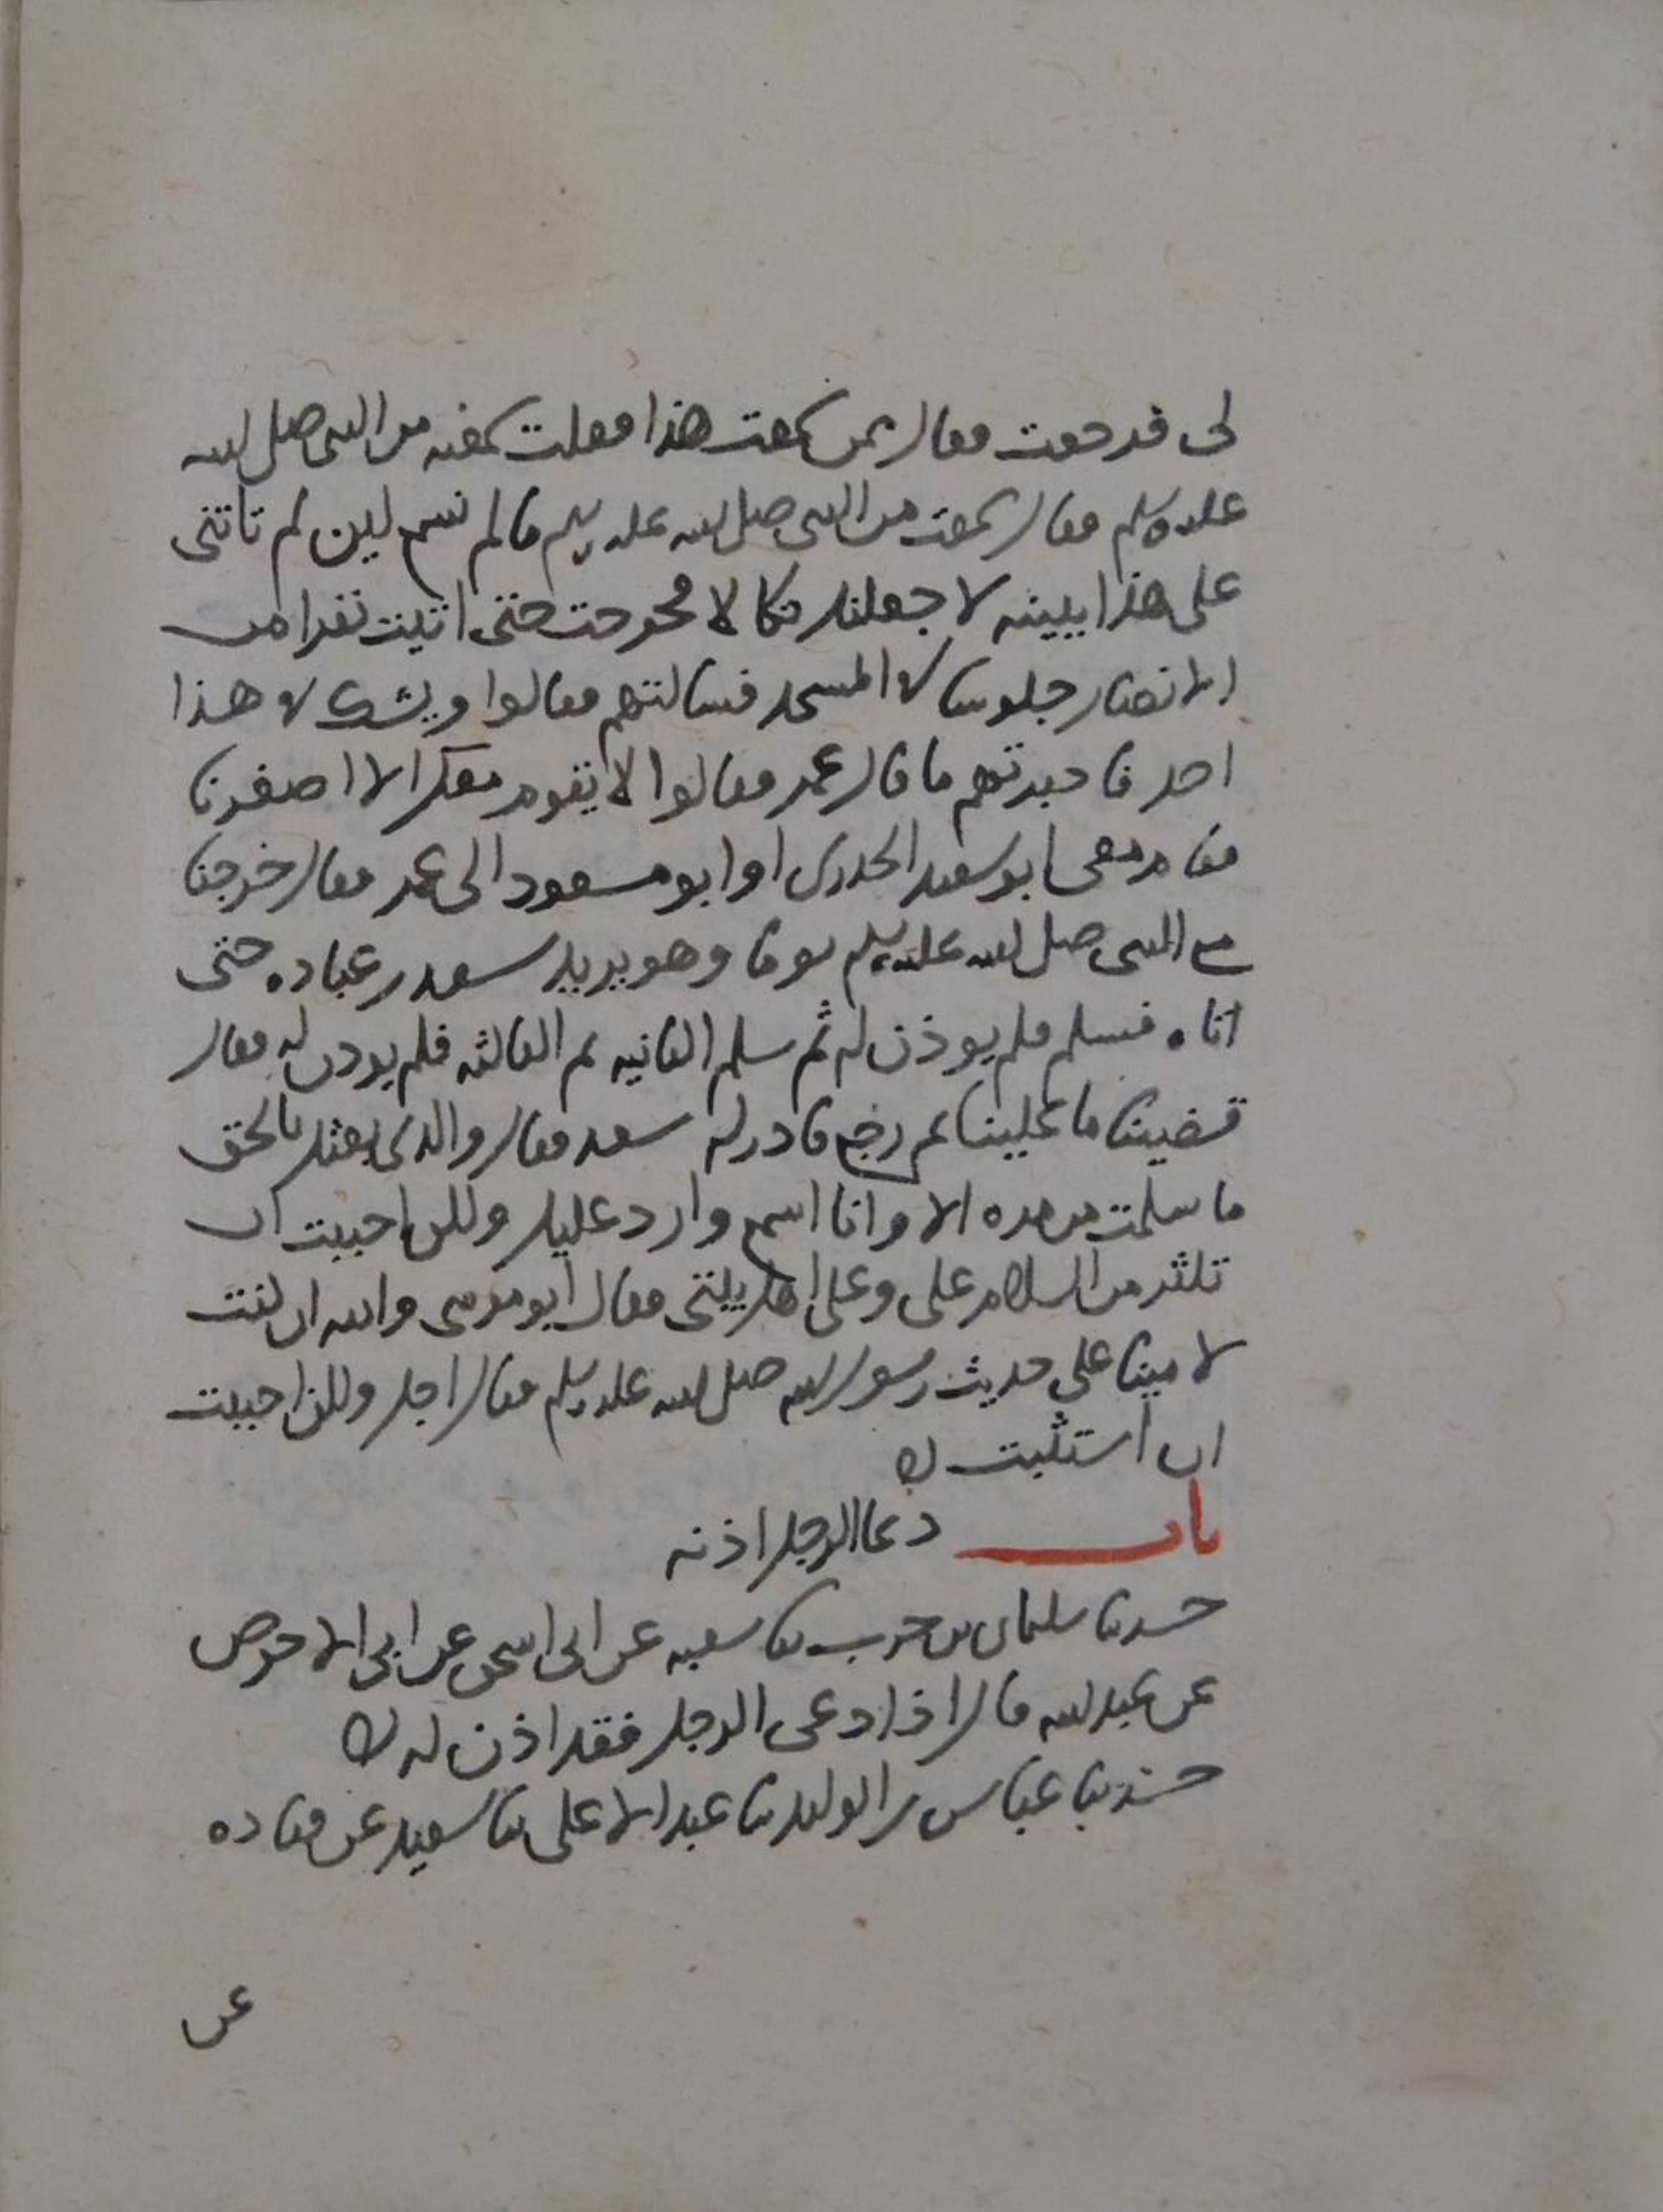 لى فرجعت فقال ممن سمعت هذا فقلت سمعته من النبي صلى الله
عليه وسلم فقال سمعت من النبي صلى الله عليه وسلم ما لم نسمع لين لم تاتني
على هذا ببينه لاجعلنك نكالا فخرجت حتى اتيت نفرا من
الانصار جلوسا في المسجد فسالتهم فقالوا ويشك في هذا
احد فاخبرتهم ما قال عمر فقالوا لا يقوم معك الا اصغرنا
فقام معي ابو سعيد الخدري او ابو مسعود الى عمر فقال خرجنا
مع النبي صلى الله عليه وسلم يوما وهو يريد سعد بن عباده حتى
اتاه فسلم فلم يوذن له ثم سلم الثانيه ثم الثالثه فلم يوذن له فقال
قضينا ما علينا ثم رجع فادركه سعد فقال والذي بعثك بالحق
ما سلمت من مره الا وانا اسمع وارد عليك ولكن احببت ان
تكثر من السلام علي وعلى اهل بيتي فقال ابو موسى والله ان كنت
لامينا على حديث رسول الله صلى الله عليه وسلم فقال اجل ولكن احببت
ان استثبت
باب دعا الرجل اذنه
حدثنا سليمان بن حرب ثنا شعبه عن ابي اسحق عن ابي الاحوص
عن عبد الله قال اذا دعي الرجل فقد اذن له
حدثنا عياش بن الوليد ثنا عبد الاعلى ثنا سعيد عن قتاده
عن